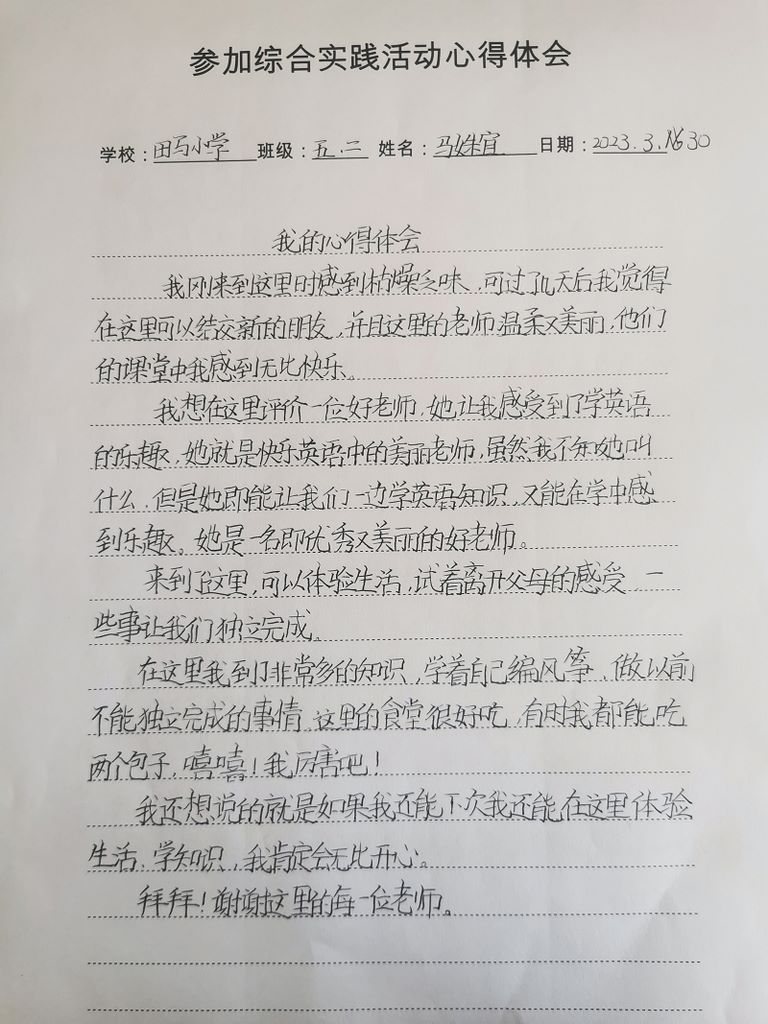 参加综合实践活动心得体会
学校：田马小学 班级：五.二 姓名：马姝宜 日期：2023.3.30
我的心得体会
我刚来到这里时感到枯燥乏味，可过了几天后我觉得
在这里可以结交新的朋友，并且这里的老师温柔又美丽，他们
的课堂中我感到无比快乐。
我想在这里评价一位好老师，她让我感受到了学英语
的乐趣，她就是快乐英语中的美丽老师，虽然我不知她叫
什么，但是她即能让我们一边学英语知识，又能在学中感
到乐趣。她是一名即优秀又美丽的好老师。
来到了这里，可以体验生活，试着离开父母的感受，一
些事让我们独立完成。
在这里我到了非常多的知识，学着自己编风筝、做以前
不能独立完成的事情，这里的食堂很好吃，有时我都能吃
两个包子，嘻嘻！我厉害吧！
我还想说的就是如果我还能下次我还能在这里体验
生活、学知识，我肯定会无比开心。
拜拜！谢谢这里的每一位老师。